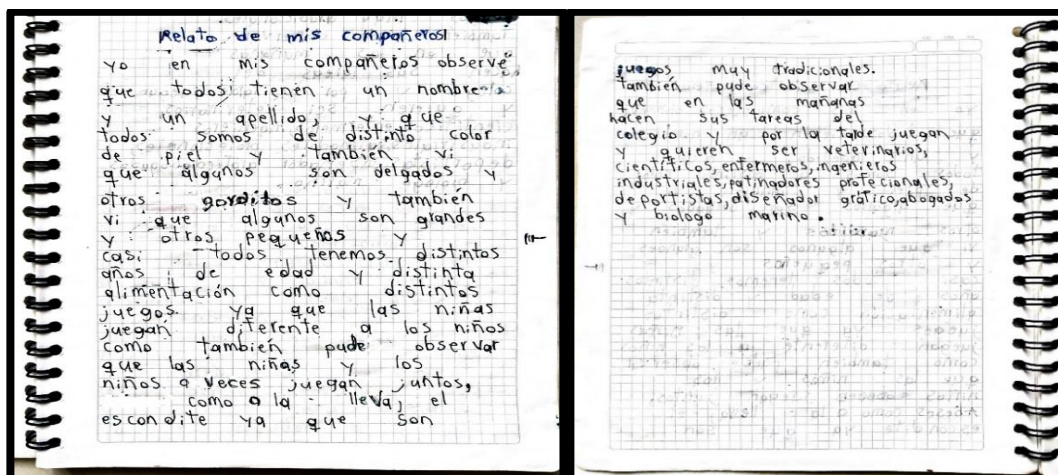 Relato de mis compañeros
yo en mis compañeros observé
que todos tienen un nombre
y un apellido, y que
todos somos de distinto color
de piel y también vi
que algunos son delgados y
otros gorditos y también
vi que algunos son grandes
y otros pequeños y
casi todos tenemos distintos
años de edad y distinta
alimentación como distintos
juegos. ya que las niñas
juegan diferente a los niños
como también pude observar
que las niñas y los
niños a veces juegan juntos,
como a la lleva, el
escondite ya que son
juegos muy tradicionales.
también pude observar
que en las mañanas
hacen sus tareas del
colegio y por la tarde juegan
y quieren ser veterinarios,
científicos, enfermeros, ingenieros
industriales, patinadores profecionales,
deportistas, diseñador gráfico, abogados
y biologo marino.